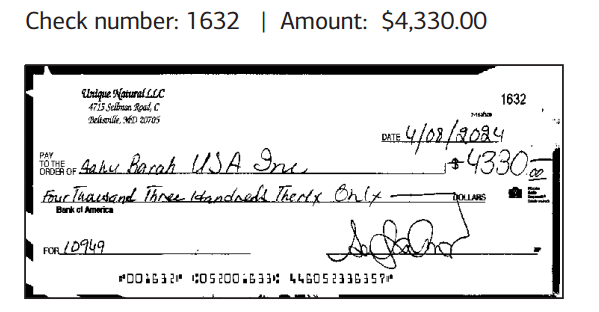 Check number: 1632 | Amount: $4,330.00
Unique Natural LLC
4715 Sellman Road, C
Beltsville, MD 20705
1632
DATE 4/08/2024
PAY
TO THE
ORDER OF Aahu Barah USA Inc.
$ 4330.00
Four Thousand Three Hundred Therty Only
DOLLARS
Bank of America
FOR 10949
⑈001632⑈ ⑆052001633⑆ 446052336357⑈